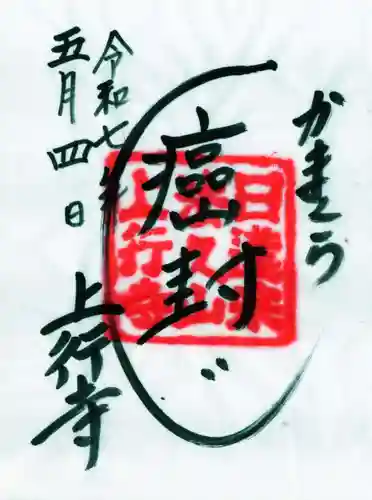 かまくら
癌封じ
令和七年
五月四日
上行寺